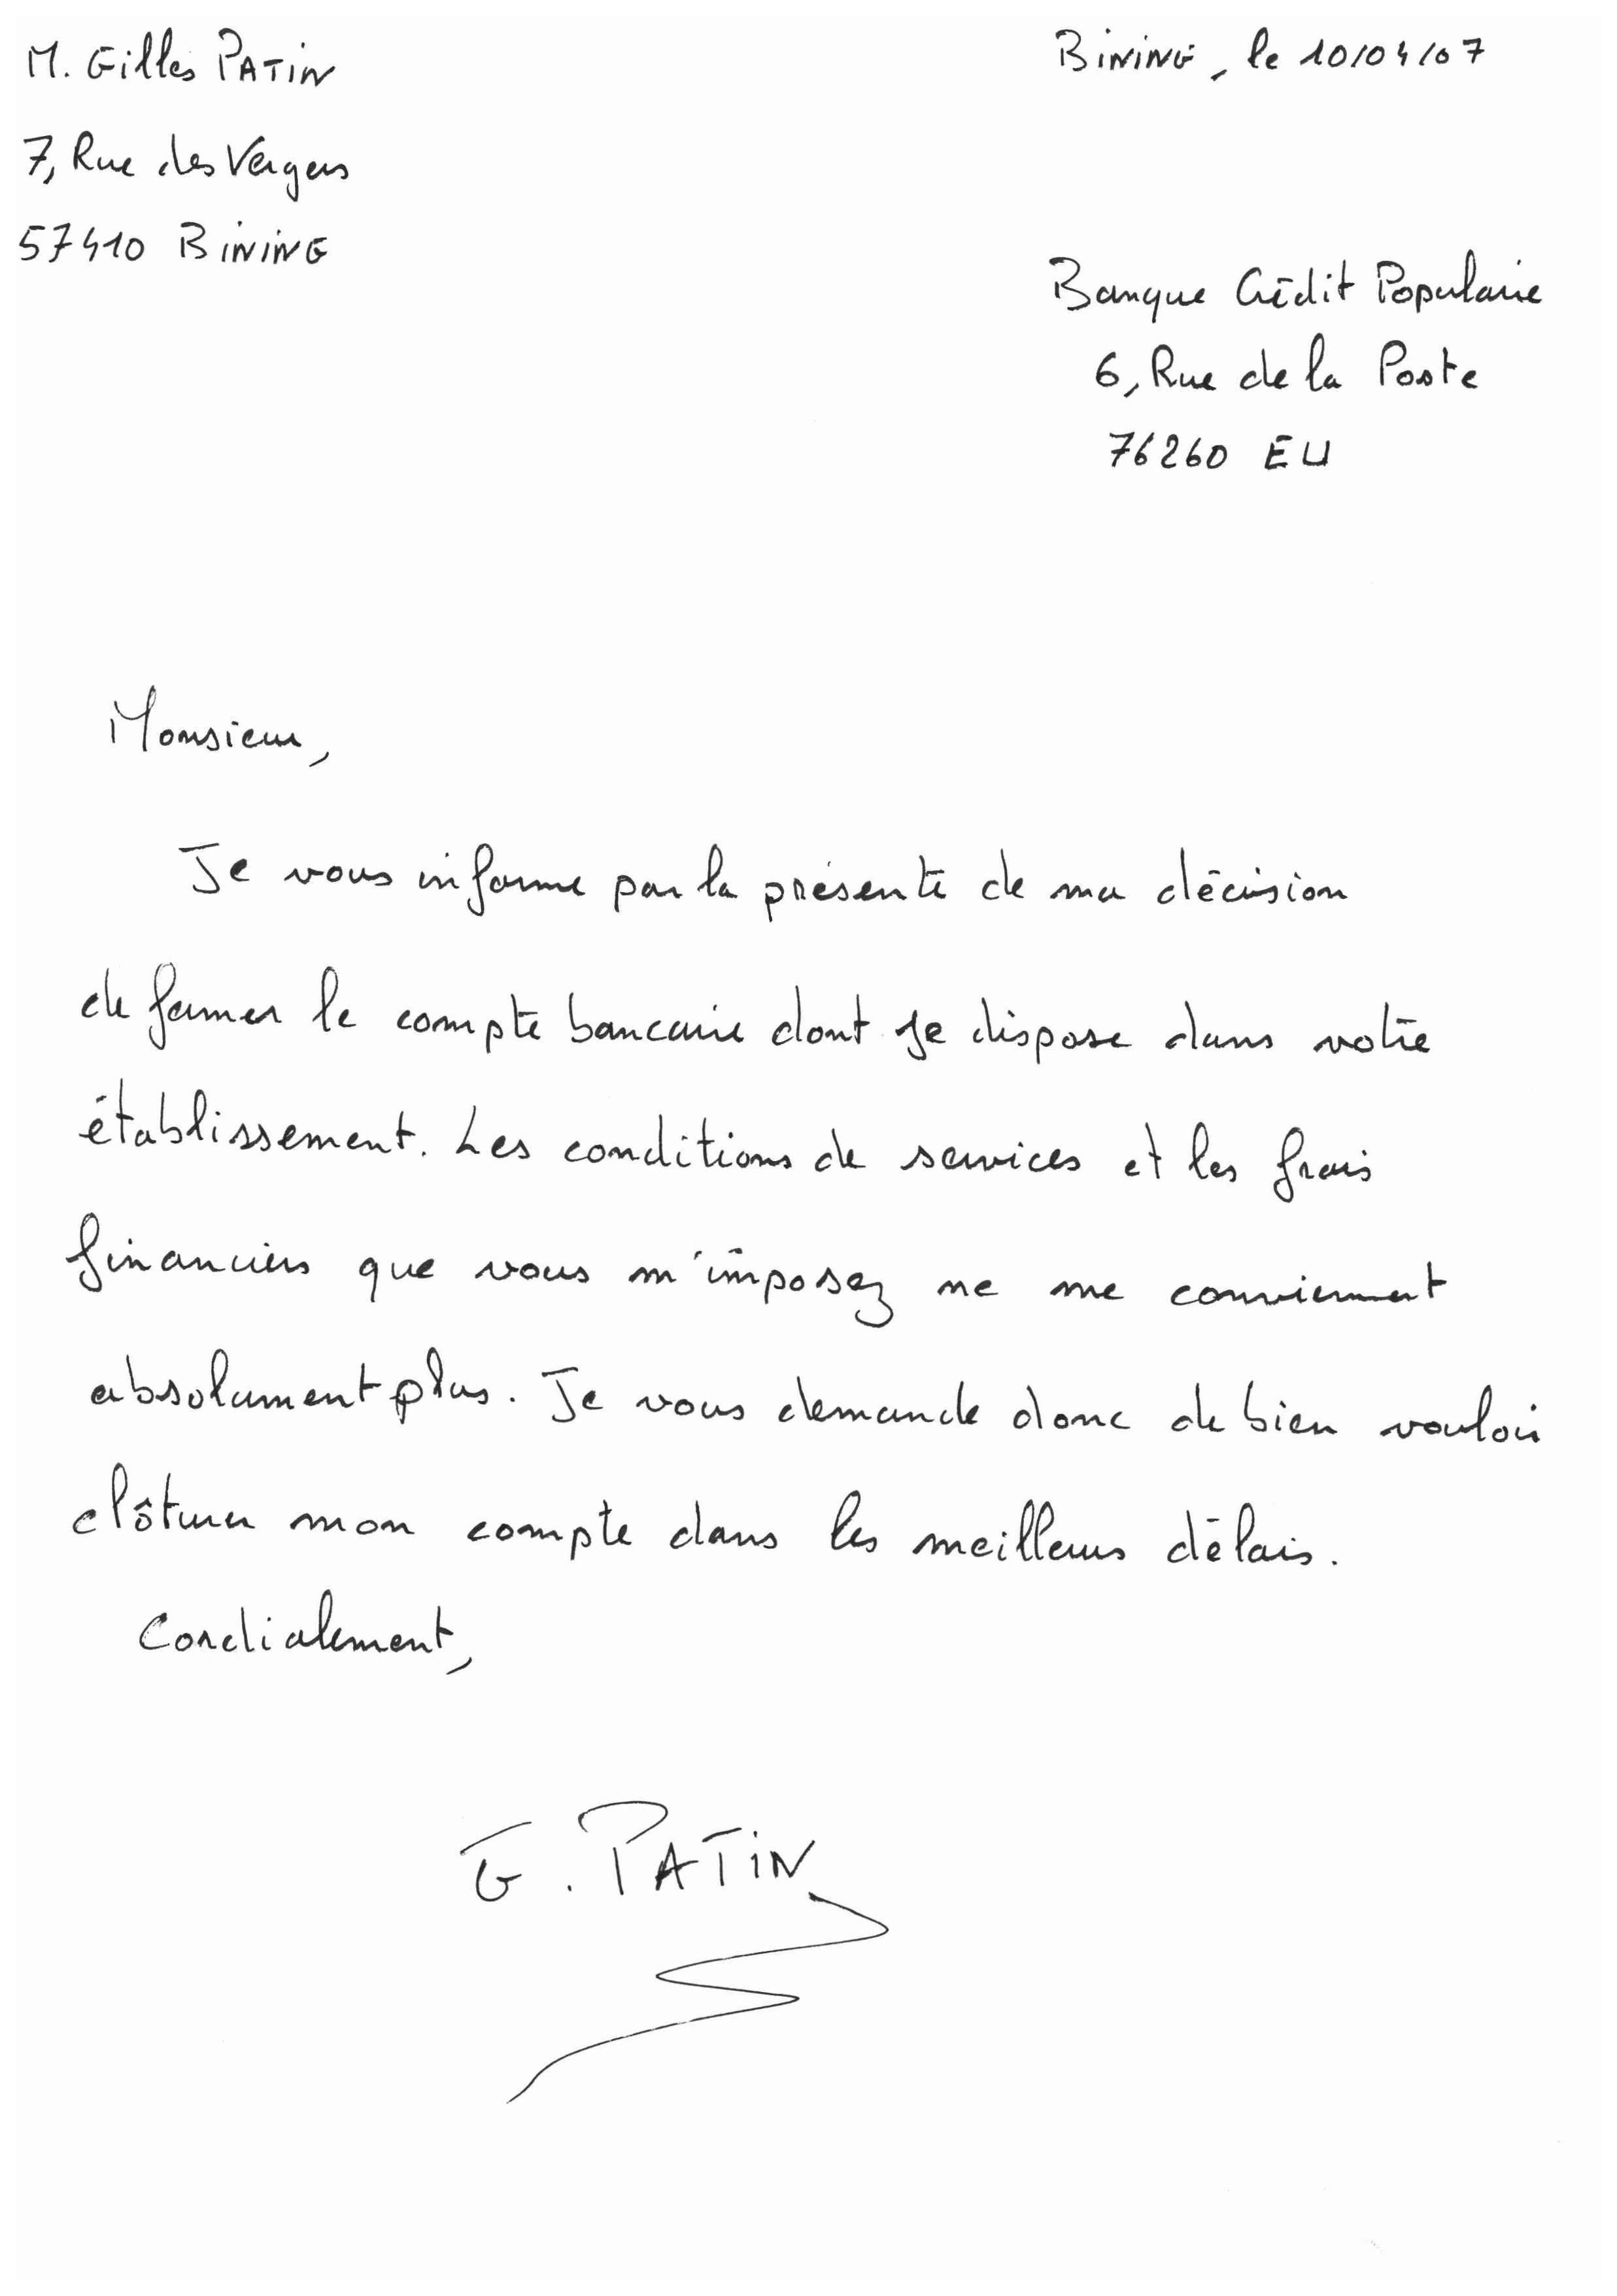 M. Gilles PATIN
Bining, le 10/04/07
7, Rue des Vergers
57410 BINING
Banque Crédit Populaire
6, Rue de la Poste
76260 EU
Monsieur,
Je vous informe par la présente de ma décision
de fermer le compte bancaire dont je dispose dans votre
établissement. Les conditions de services et les frais
financiers que vous m'imposez ne me conviennent
absolument plus. Je vous demande donc de bien vouloir
clôturer mon compte dans les meilleurs délais.
Cordialement,
G. PATIN